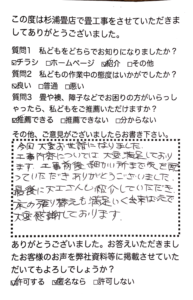 この度は杉浦畳店で畳工事をさせていただきま
してありがとうございました。
質問1 私どもをどちらでお知りになりましたか？
☑チラシ □ホームページ ☑紹介 □その他
質問2 私どもの作業中の態度はいかがでしたか？
☑良い □普通 □悪い
質問3 畳や襖、障子などでお困りの方がいらっし
ゃったら、私どもをご推薦いただけますか？
☑推薦できる □推薦できない □分からない
その他、ご意見がございましたらお書き下さい。
今回大変お世話になりました。
工事内容については大変満足しており
ます。工事前後
っていただきありがとうございました。
最後に大工さんも紹介していただき
床の張り替えも満足いく出来で
大変感謝しております。
ありがとうございました。お答えいただきまし
たお客様のお声を弊社資料等に掲載させていた
だいてもよろしでしょうか？
☑許可する ☑匿名なら □許可しない